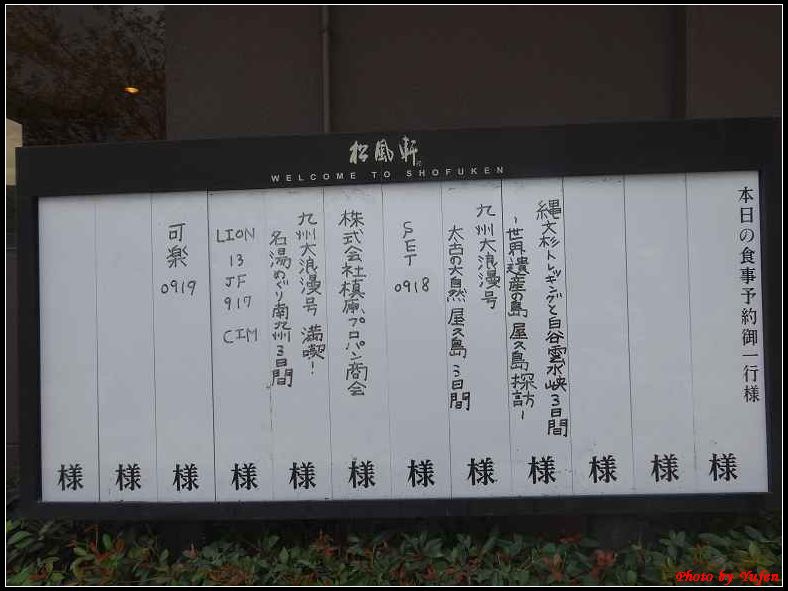 松風軒
WELCOME TO SHOFUKEN
本日の食事予約御一行様
様
様
様
縄文杉トレッキングと白谷雲水峡3日間
~世界遺産の島 屋久島探訪~
様
九州大浪漫号
太古の大自然 屋久島3日間
様
SET
0918
様
株式会社槙庫プロパン商会
様
九州大浪漫号 満喫!
名湯めぐり南九州3日間
様
LION
13
JF
917
CIM
様
可楽
0919
様
様
様
Photo by Yufen